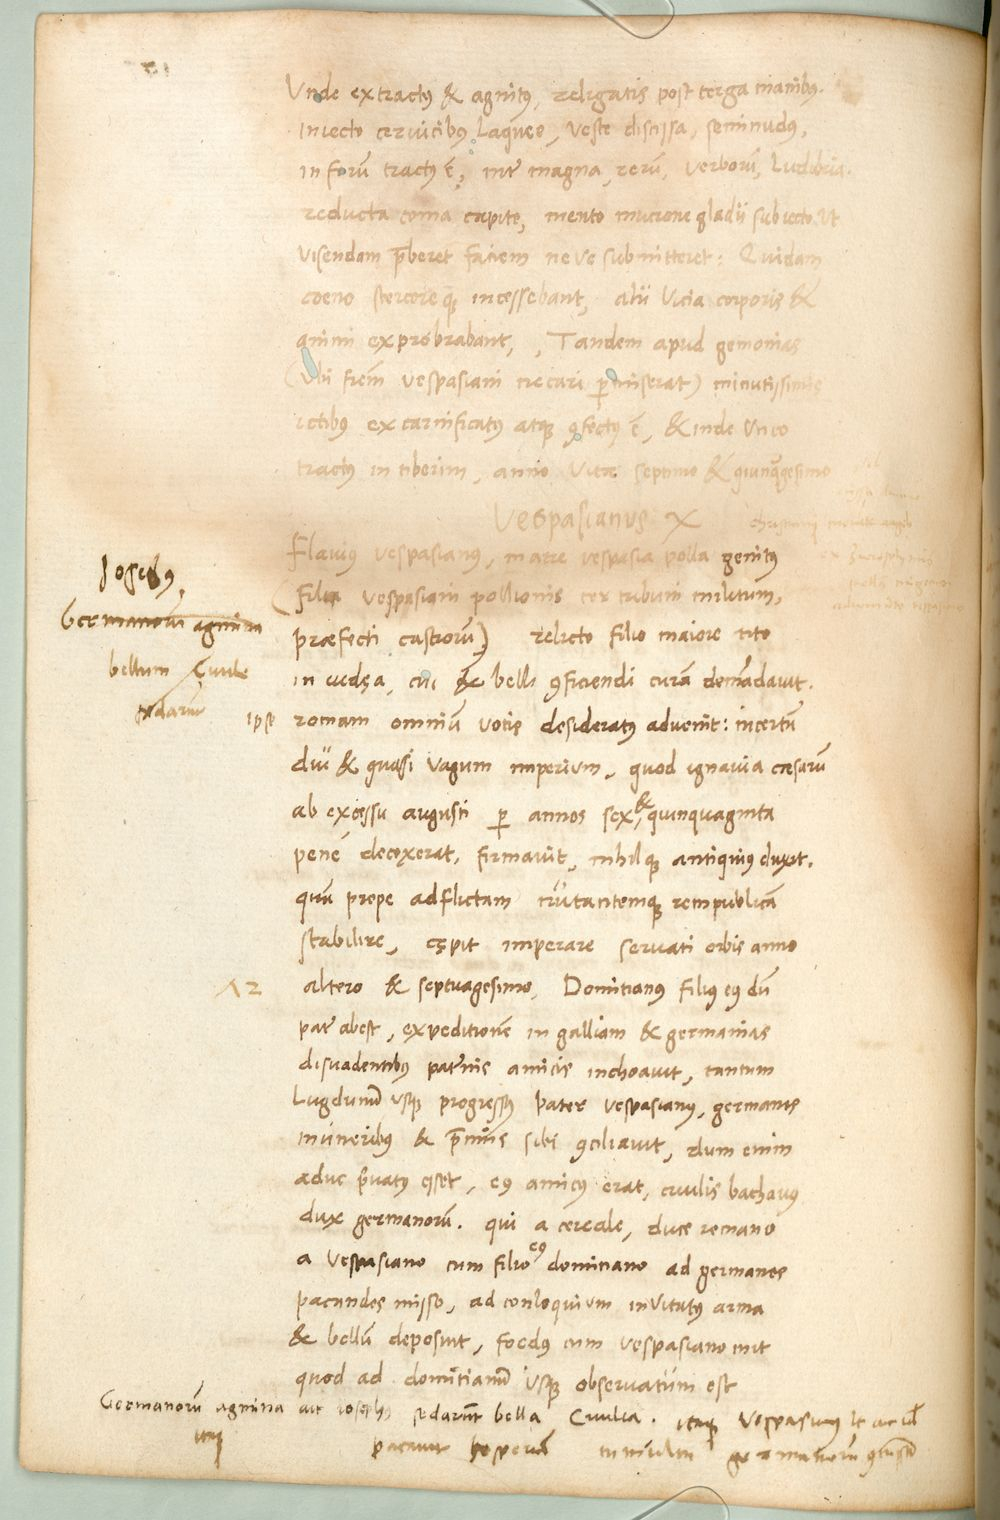 Vnde extractꝰ & agnitꝰ, religatis post terga manibꝰ.
iniecto ceruicibꝰ Laqueo, veste discissa, seminudꝰ,
in forū tractꝰ ē, inter magna, rerū, verborū, Ludibria.
reducta coma capite, mento mucrone gladii subiecto ut
visendam p̄beret faciem neve submitteret: Quidam
coeno stercoreq; incessebant, alii vicia corporis &
animi exprobrabant, Tandem apud gemonias
(vbi frēm vespasiani necari ꝑmiserat) minutissimis
ictibꝰ excarnificatꝰ atq; ꝯfectꝰ ē, & inde vnco
tractꝰ in tiberim, anno vitæ septimo & quinq̄gesimo
Vespasianus X
Flavius vespasianus, matre vespasia polla genitꝰ
(filia vespasiani pollionis ter tribuni militum,
præfecti castrorū) relicto filio maiore tito
in iudęa, cui & belli ꝯficiendi curā demādauit.
ipse romam omniū votis desideratꝰ advenit: incertū
diu & quasi vagum imperium, quod ignavia cæsarū
ab excessu augusti ꝑ annos sex & quinquaginta
pene decoxerat, firmavit, nihilq; antiquius duxit.
quā prope adflictam nūtantemq; rempublicā
stabilire, cępit imperare servati orbis anno
altero & septuagesimo, Domitianꝰ filiꝰ eꝰ dū
pater abest, expeditionē in galliam & germanias
disuadentibꝰ paternis amicis inchoavit, tantum
Lugdunū usq; progressꝰ pater vespasianꝰ, germanos
muneribꝰ & p̄miis sibi ꝯciliavit, dum enim
aduc p̄vatꝰ esset, eꝰ amicꝰ erat, civilis bachavꝰ
dux germanorū. qui a cereale, duce romano
a Vespasiano cum filio eꝰ dominano ad germanos
pacandos misso, ad conloquium invitatꝰ arma
& bellū deposuit, foedꝰ cum vespasiano init
quod ad domitianū usq; observatum est
Iosephꝰ,
Germanorū agmina
bellum Civile
sedarūt
72
Germanorū agmina ait iosephꝰ sedarūt bella Civilia. itaq; Vespasianꝰ
itaq; pacavit hesperiā tumultu germanorū